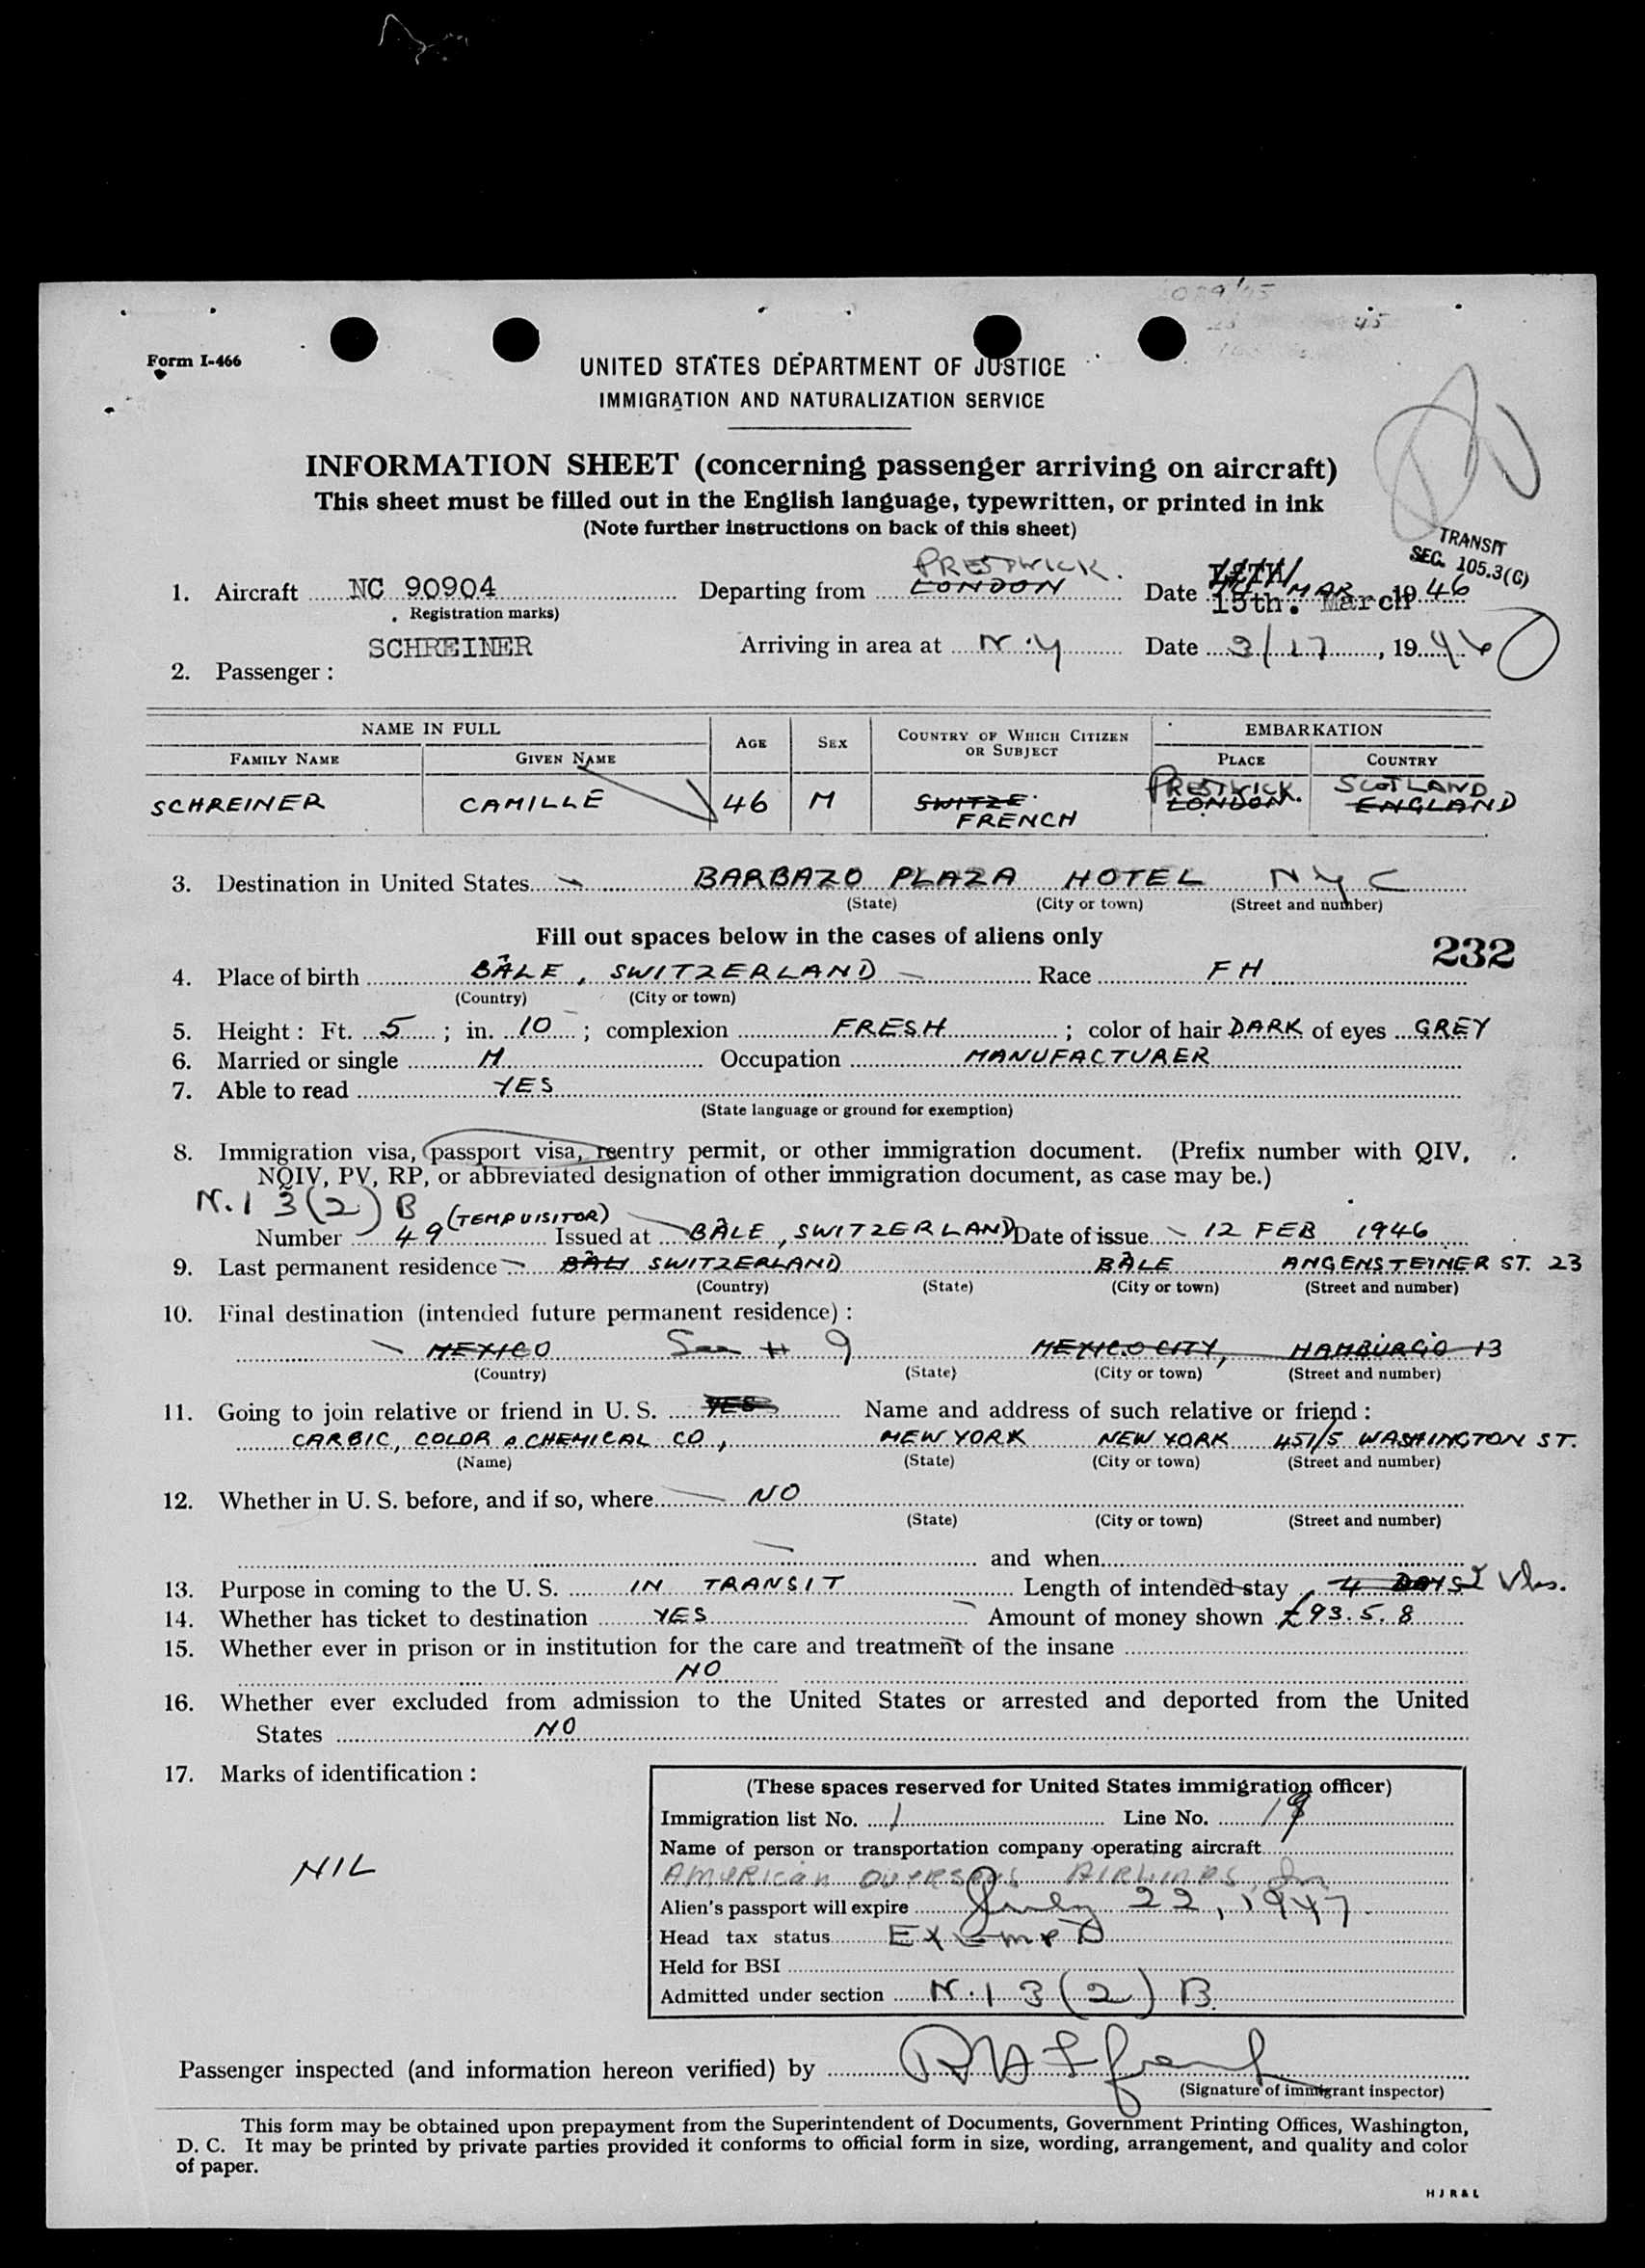 Form I-466
UNITED STATES DEPARTMENT OF JUSTICE
IMMIGRATION AND NATURALIZATION SERVICE
INFORMATION SHEET (concerning passenger arriving on aircraft)
This sheet must be filled out in the English language, typewritten, or printed in ink
(Note further instructions on back of this sheet)
TRANSIT
SEC. 105.3(C)
PRESTWICK.
1. Aircraft NC 90904 Departing from LONDON Date 15th. March MAR 1946
Registration marks)
SCHREINER Arriving in area at N.Y Date 3/17, 1946
2. Passenger :
NAME IN FULL AGE SEX COUNTRY OF WHICH CITIZEN OR SUBJECT EMBARKATION
FAMILY NAME GIVEN NAME PLACE COUNTRY
PRESTWICK SCOTLAND
SCHREINER CAMILLE 46 M SWITZE. LONDON. ENGLAND
FRENCH
3. Destination in United States BARBAZO PLAZA HOTEL NYC
(State) (City or town) (Street and number)
Fill out spaces below in the cases of aliens only
232
4. Place of birth BÂLE, SWITZERLAND Race FH
(Country) (City or town)
5. Height : Ft. 5 ; in. 10 ; complexion FRESH ; color of hair DARK of eyes GREY
6. Married or single M Occupation MANUFACTURER
7. Able to read YES
(State language or ground for exemption)
8. Immigration visa, passport visa, reentry permit, or other immigration document. (Prefix number with QIV,
NQIV, PV, RP, or abbreviated designation of other immigration document, as case may be.)
N.I 3(2) B
Number 49 (TEMP VISITOR) Issued at BÂLE, SWITZERLAND Date of issue 12 FEB 1946
9. Last permanent residence BÂL SWITZERLAND BÂLE ANGENSTEINER ST. 23
(Country) (State) (City or town) (Street and number)
10. Final destination (intended future permanent residence) :
MEXICO See # 9 MEXICO CITY, HAMBURGO 13
(Country) (State) (City or town) (Street and number)
11. Going to join relative or friend in U. S. YES Name and address of such relative or friend :
CARBIC, COLOR & CHEMICAL CO, NEW YORK NEW YORK 451/5 WASHINGTON ST.
(Name) (State) (City or town) (Street and number)
12. Whether in U. S. before, and if so, where NO
(State) (City or town) (Street and number)
and when
13. Purpose in coming to the U. S. IN TRANSIT Length of intended stay 4 DAYS
14. Whether has ticket to destination YES Amount of money shown £93.5.8
15. Whether ever in prison or in institution for the care and treatment of the insane
NO
16. Whether ever excluded from admission to the United States or arrested and deported from the United
States NO
17. Marks of identification :
NIL
(These spaces reserved for United States immigration officer)
Immigration list No. 1 Line No. 19
Name of person or transportation company operating aircraft
American Overseas Airlines, In
Alien's passport will expire July 22, 1947
Head tax status Exempt
Held for BSI
Admitted under section N.I 3(2) B.
Passenger inspected (and information hereon verified) by
(Signature of immigrant inspector)
This form may be obtained upon prepayment from the Superintendent of Documents, Government Printing Offices, Washington,
D. C. It may be printed by private parties provided it conforms to official form in size, wording, arrangement, and quality and color
of paper.
H J R & L